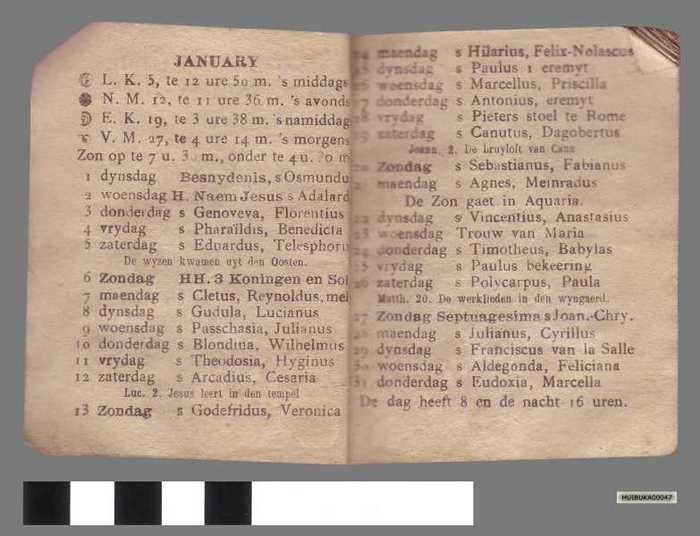 JANUARY
L. K. 5, te 12 ure 50 m. 's middags
N. M. 12, te 11 ure 36 m. 's avonds
E. K. 19, te 3 ure 38 m. 's namiddag
V. M. 27, te 4 ure 14 m. 's morgens
Zon op te 7 u. m., onder te 4 u. m
1 dynsdag Besnydenis, s Osmundu
2 woensdag H. Naem Jesus s Adalard
3 donderdag s Genoveva, Florentius
4 vrydag s Pharaïldis, Benedicta
5 zaterdag s Eduardus, Telesphoru
De wyzen kwamen uyt den Oosten.
6 Zondag HH. 3 Koningen en Sol
7 maendag s Cletus, Reynoldus, mel
8 dynsdag s Gudula, Lucianus
9 woensdag s Passchasia, Julianus
10 donderdag s Blondina, Wilhelmus
11 vrydag s Theodosia, Hyginus
12 zaterdag s Arcadius, Cesaria
Luc. 2. Jesus leert in den tempel
13 Zondag s Godefridus, Veronica
14 maendag s Hilarius, Felix-Nolascus
15 dynsdag s Paulus 1 eremyt
16 woensdag s Marcellus, Priscilla
17 donderdag s Antonius, eremyt
18 vrydag s Pieters stoel te Rome
19 zaterdag s Canutus, Dagobertus
Joann. 2. De bruyloft van Cana
20 Zondag s Sebastianus, Fabianus
21 maendag s Agnes, Meinradus
De Zon gaet in Aquaria.
22 dynsdag s Vincentius, Anastasius
23 woensdag Trouw van Maria
24 donderdag s Timotheus, Babylas
25 vrydag s Paulus bekeering
26 zaterdag s Polycarpus, Paula
Matth. 20. De werklieden in den wyngaerd.
27 Zondag Septuagesima s Joan.-Chry.
28 maendag s Julianus, Cyrillus
29 dynsdag s Franciscus van la Salle
30 woensdag s Aldegonda, Feliciana
31 donderdag s Eudoxia, Marcella
De dag heeft 8 en de nacht 16 uren.
HUIBUKA00047